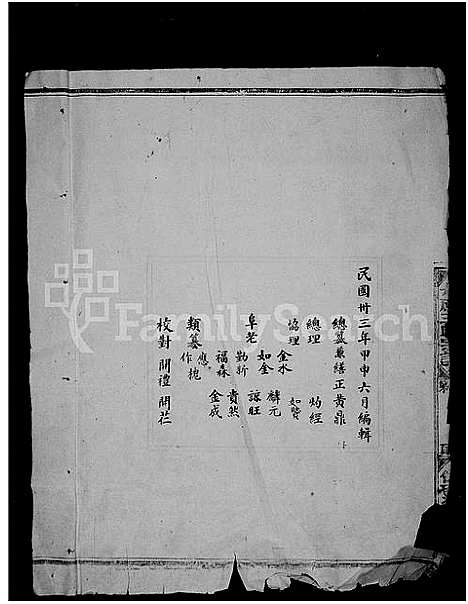 民國卅三年甲申六月編輯
總纂兼繕正黃鼎
總理 灼經
協理 金水 如賢
如金 麟元
阜老 勤祈 諒旺
福森 貴然
應 金成
類纂 作梔
校對 開禮 開茳
FamilySearch